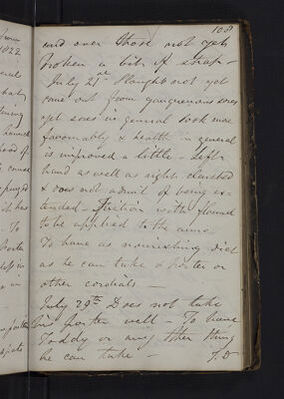 108
and over those not yet
broken a bit of strap -
July 21st Sloughs not yet
come out from gangrenous sores
yet sores in general look more
favourably & health in general
is improved a little - Left
hand as well as right clenched
& does not admit of being ex-
tended - Friction with flannel
to be applied to the arms -
To have as nourishing diet
as he can take & porter or
other cordials -
July 29th Does not take
his porter well - To have
Toddy or any other thing
he can take - T.D